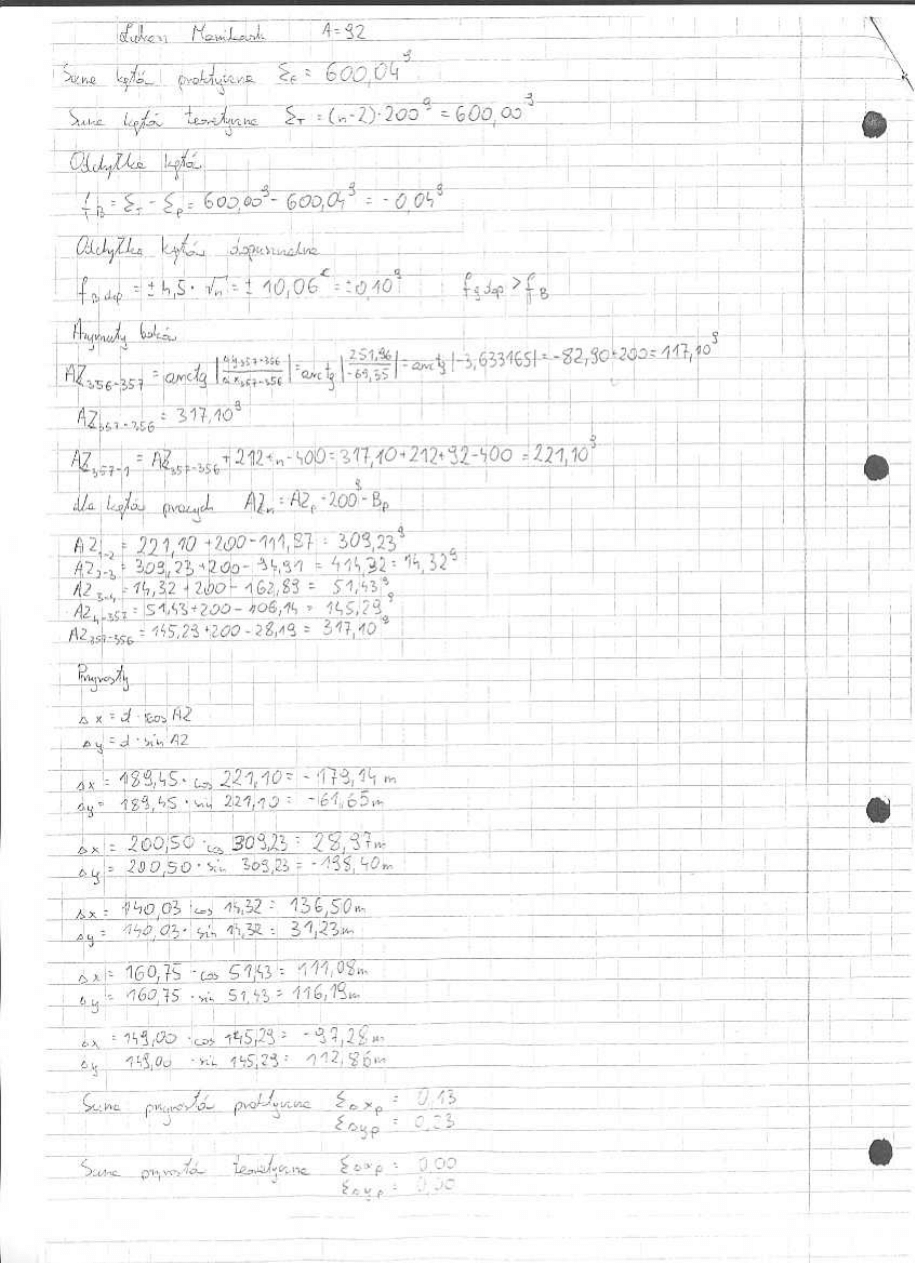 A=92
Suma kątów praktyczna Σp = 600,04^g
Suma kątów teoretyczna ΣT = (n-2)·200^g = 600,00^g
Odchyłka kątów
fB = ΣT - Σp = 600,00^g - 600,04^g = -0,04^g
Odchyłka kątów dopuszczalna
fB dop = ±4,5·√n = ±10,06^c = ±0,10^g fB dop > fB
Azymuty boków
AZ356-357 = arctg |Δy357-356 / Δx357-356| = arctg |251,96 / -69,35| = arctg |-3,633165| = -82,90+200 = 117,10^g
AZ357-356 = 317,10^g
AZ357-1 = AZ357-356 + 212+n-400 = 317,10+212+92-400 = 221,10^g
dla kątów prawych AZn = AZp + 200^g - Bp
AZ1-2 = 221,10 +200-111,87 = 309,23^g
AZ2-3 = 309,23 +200- 94,91 = 414,32 = 14,32^g
AZ3-4 = 14,32 +200- 162,89 = 51,43^g
AZ4-357 = 51,43+200- 106,14 = 145,29^g
AZ357-356 = 145,29 +200 - 28,19 = 317,10^g
Przyrosty
Δx = d · cos AZ
Δy = d · sin AZ
Δx = 189,45 · cos 221,10 = -179,14 m
Δy = 189,45 · sin 221,10 = -61,65m
Δx = 200,50 · cos 309,23 = 28,97m
Δy = 200,50 · sin 309,23 = -198,40m
Δx = 140,03 · cos 14,32 = 136,50m
Δy = 140,03 · sin 14,32 = 31,23m
Δx = 160,75 · cos 51,43 = 111,08m
Δy = 160,75 · sin 51,43 = 116,19m
Δx = 149,00 · cos 145,29 = -97,28m
Δy 149,00 · sin 145,29 = 112,86m
Suma przyrostów praktyczna ΣΔxp = 0,13
ΣΔyp = 0,23
Suma przyrostów teoretyczna ΣΔxp = 0,00
ΣΔyp = 0,00